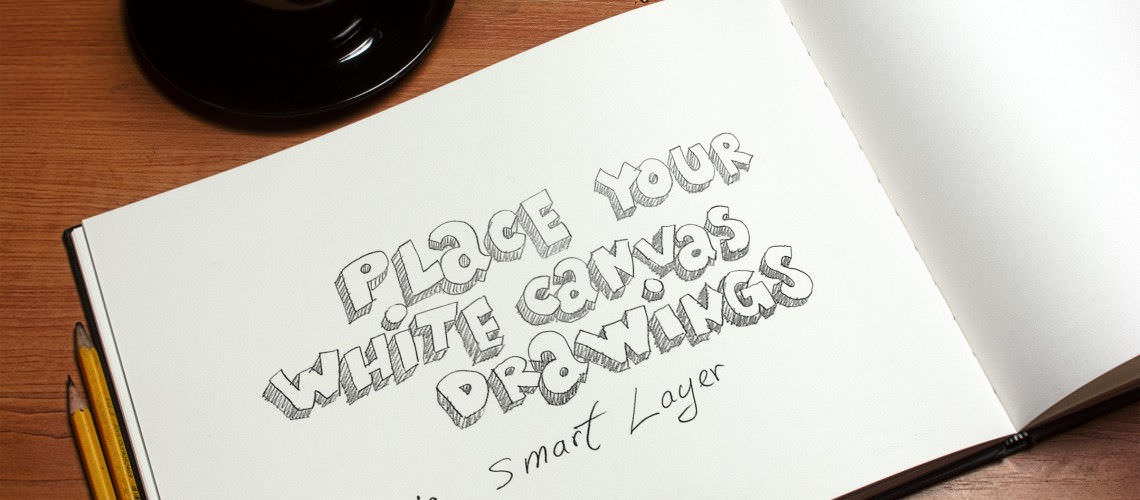 PLACE YOUR
WHiTE CaNVaS
DRaWiNGS
Smart Layer